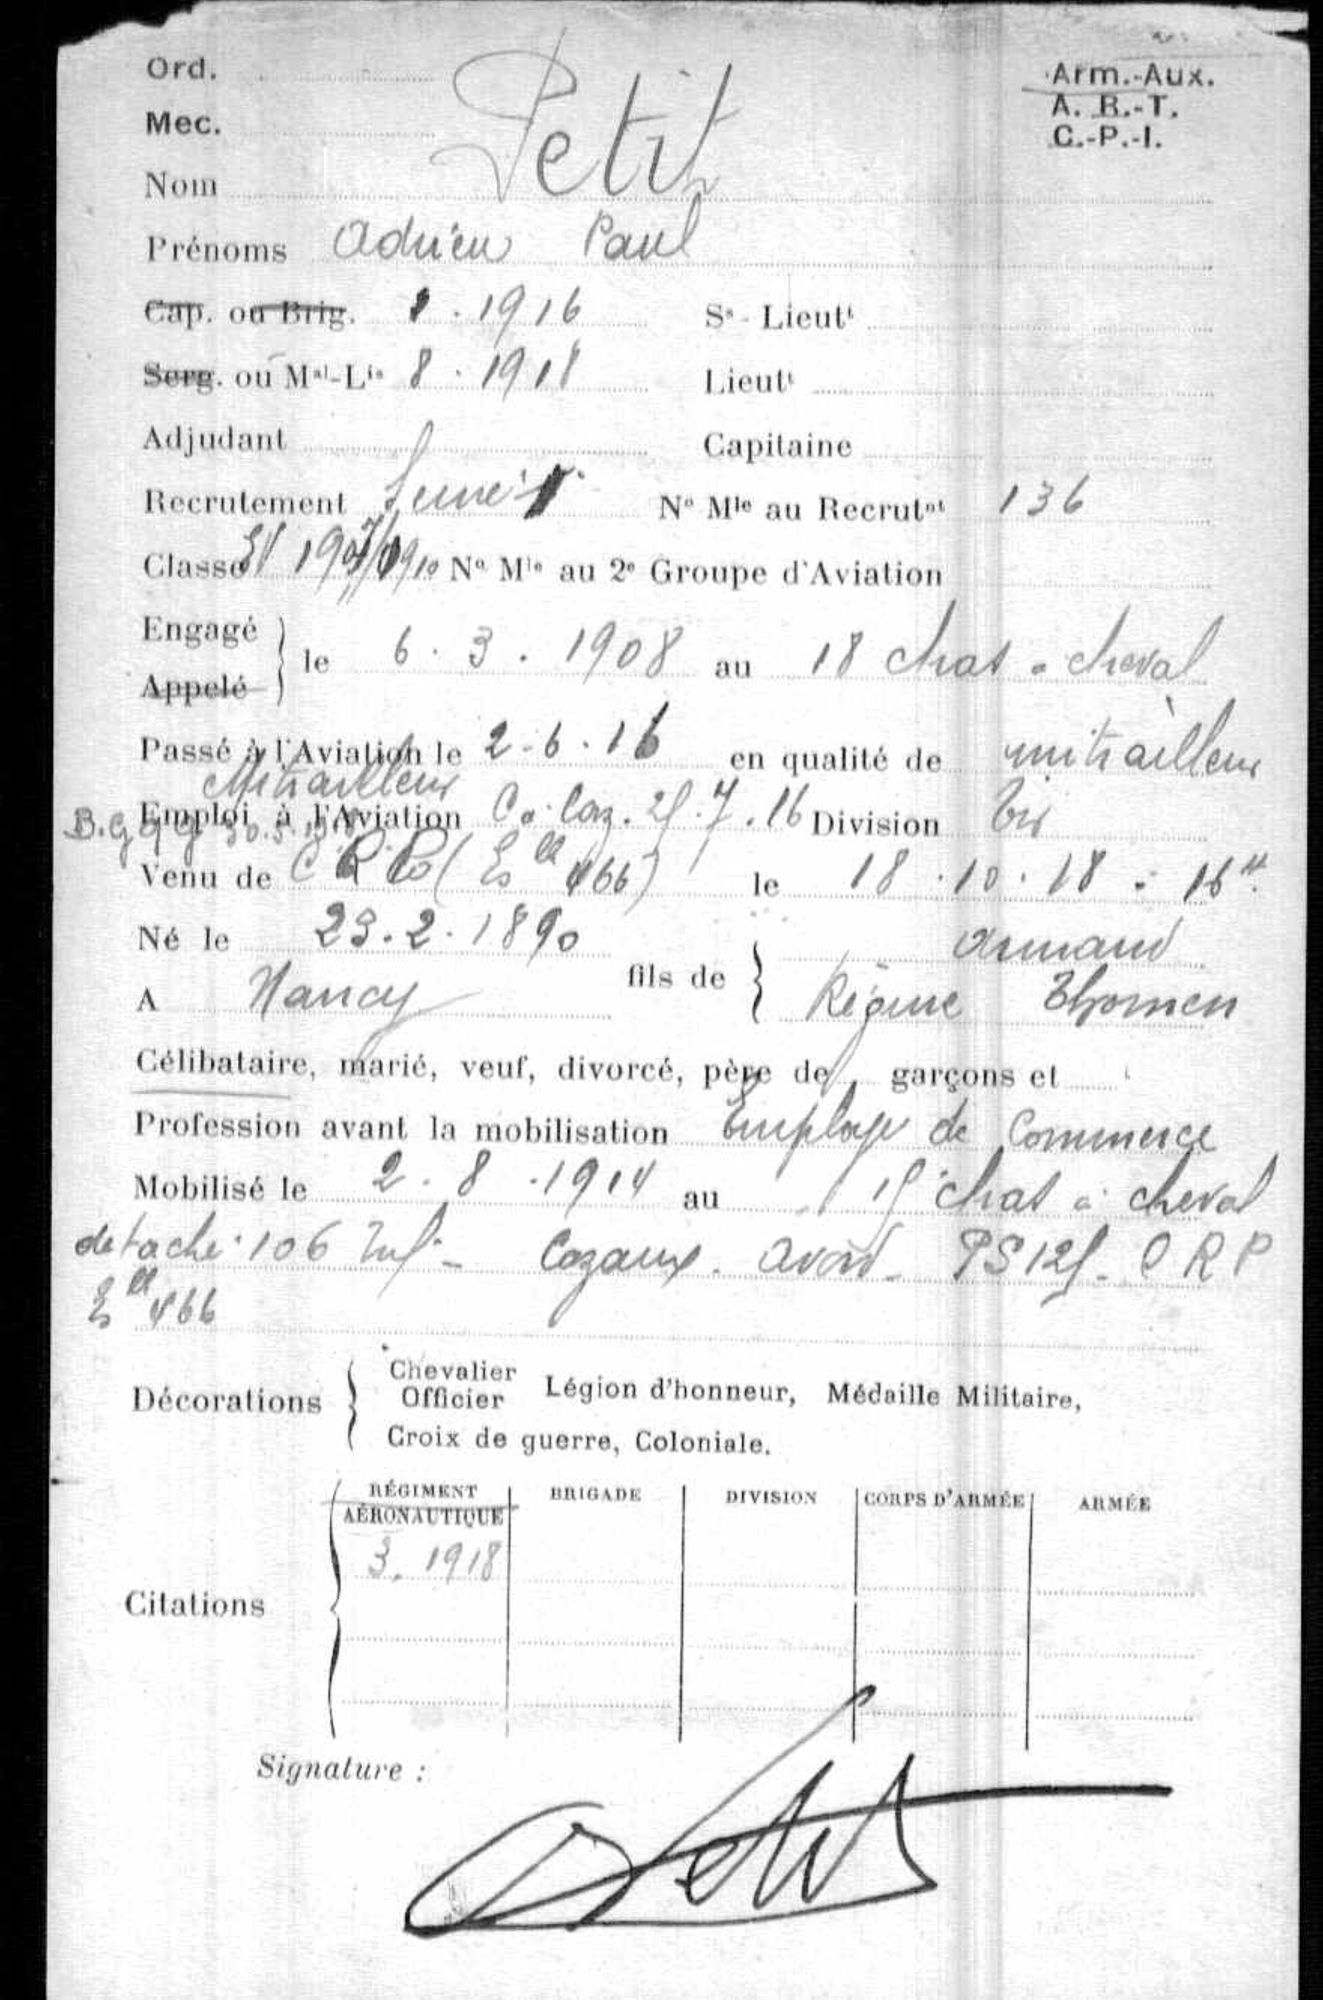 Ord.
Arm.-Aux.
Mec.
A. R.-T.
C.-P.-I.
Nom Petit
Prénoms Adrien Paul
Cap. ou Brig. 1916 Ss - Lieutt
Serg. ou Mal-Lis 8 . 1918 Lieutt
Adjudant Capitaine
Recrutement No Mle au Recrutnt 136
Classe No Mle au 2e Groupe d'Aviation
Engagé
Appelé
le 6 . 3 . 1908 au 18 chas à cheval
Passé à l'Aviation le 2.6.16 en qualité de mitrailleur
Mitrailleur
Emploi à l'Aviation Division
Venu de le 18 . 10 . 18
Né le 23.2.1890
fils de Armand
A Nancy Régine Thomen
Célibataire, marié, veuf, divorcé, père de garçons et
Profession avant la mobilisation Employé de Commerce
Mobilisé le 2 . 8 . 1914 au chas à cheval
détaché 106 Inf - Cazaux. Avord - C R P
Elle 466
Décorations
Chevalier
Officier
Légion d'honneur, Médaille Militaire,
Croix de guerre, Coloniale.
Citations
RÉGIMENT BRIGADE DIVISION CORPS D'ARMÉE ARMÉE
AÉRONAUTIQUE
3. 1918
Signature :
Petit